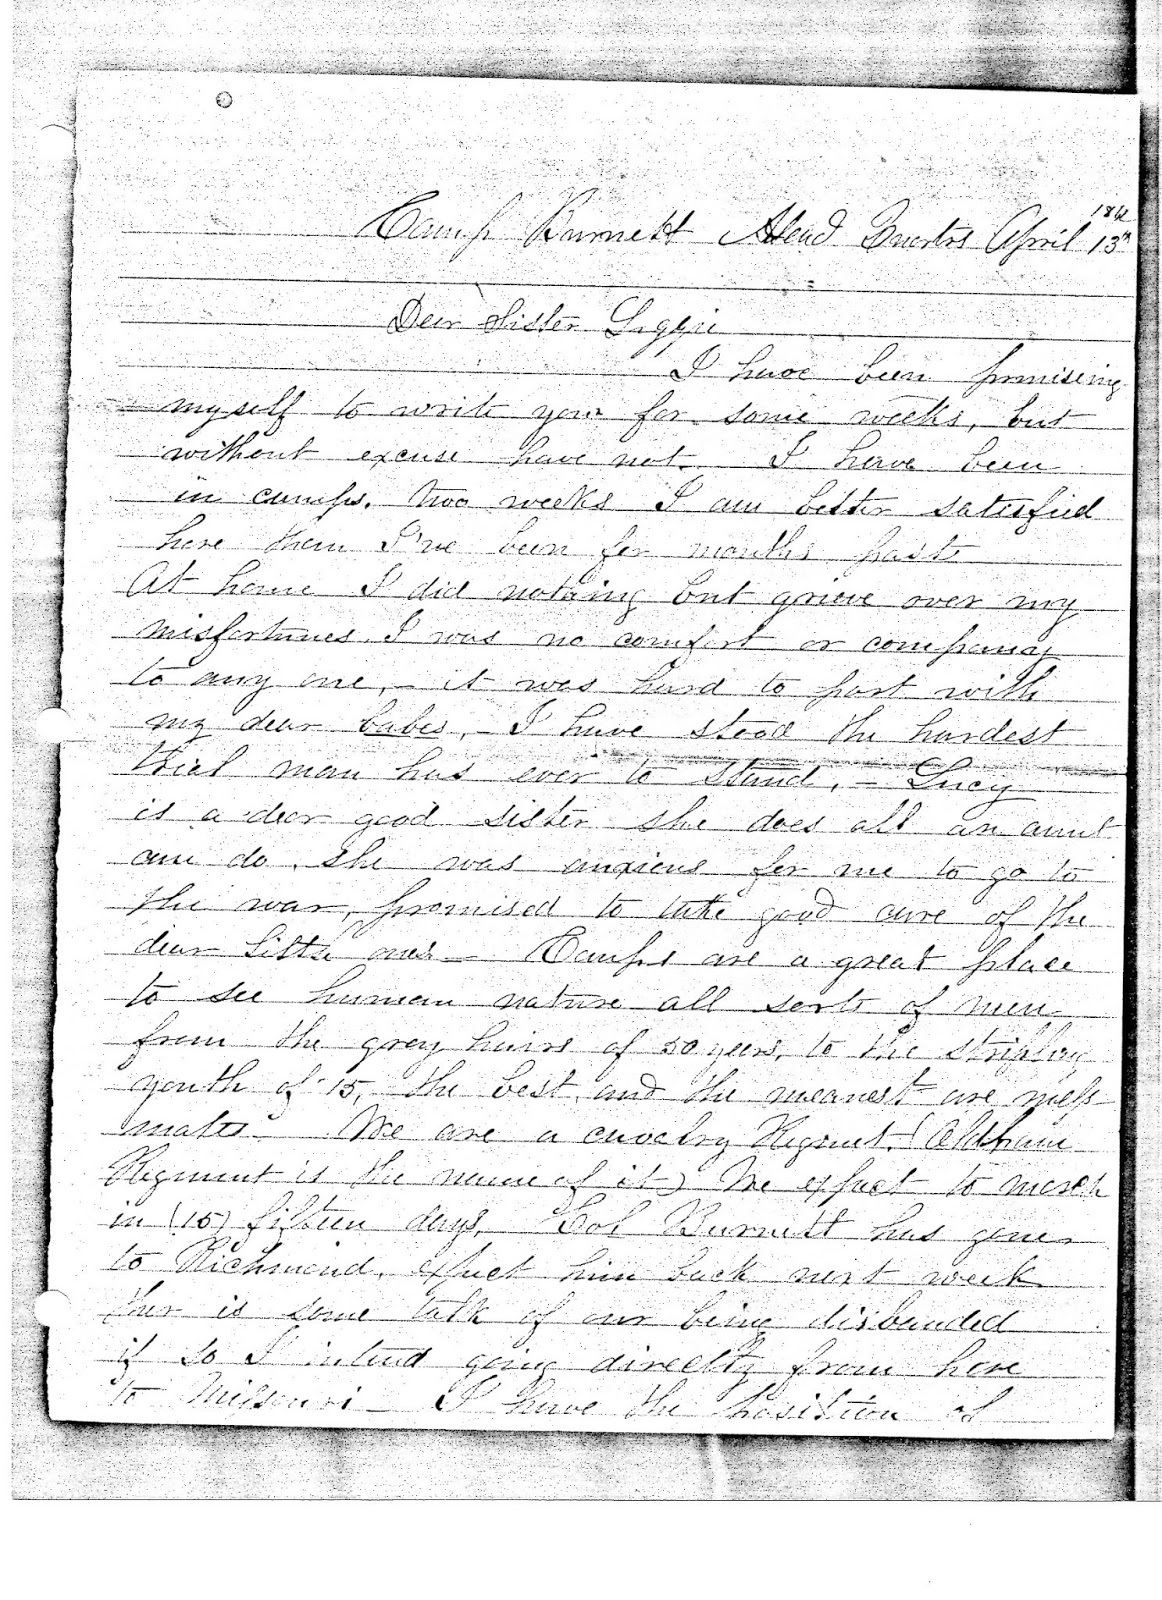 Camp Burnett Head Quartrs April 13th
Dear Sister
I have been promising
myself to write you for some weeks, but
without excuse have not. I have been
in camps. two weeks I am better satisfied
here then I've been for months past
At home I did nothing but grieve over my
misfortunes. I was no comfort or company
to any one, – it was hard to part with
my dear babes, – I have stood the hardest
trial man has ever to stand, – Lucy
is a dear good sister she does all an aunt
can do. she was anxious for me to go to
the war, promised to take good care of the
dear little ones – Camps are a great place
to see human nature all sorts of men
from the gray hairs of 50 years, to the stripling
youth of 15, the best and the meanest are mess
mates We are a cavalry Regmet. (Oldham
Regment is the name of it) We expect to march
in (15) fifteen days, Col Burnett has gone
to Richmond, expect him back next week
ther is some talk of our being disbanded
if so I intend going directly from here
to Missouri – I have the position of